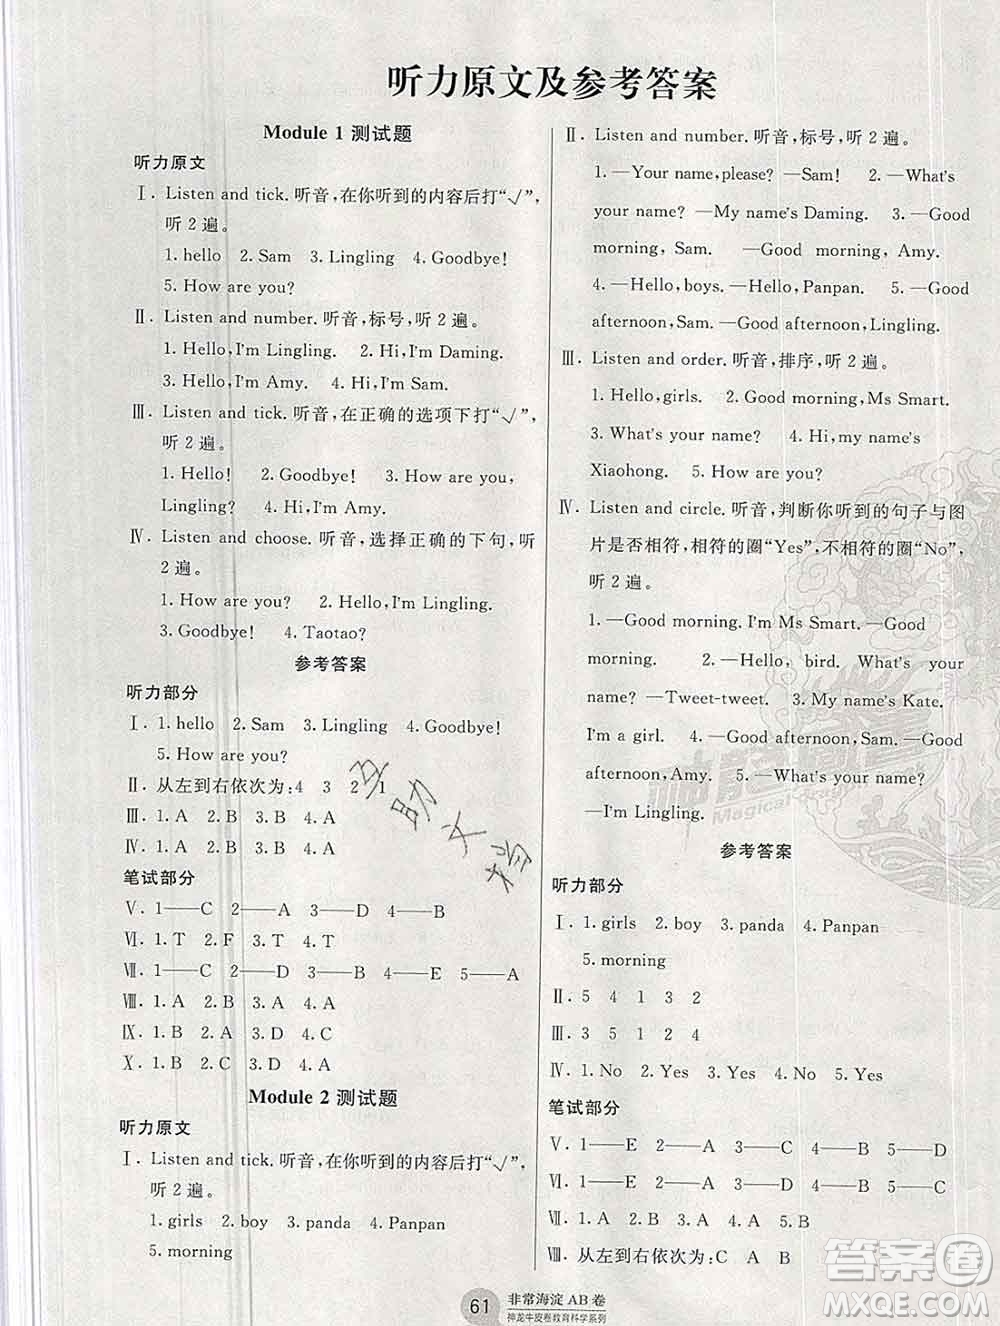 听力原文及参考答案
Module 1 测试题
听力原文
Ⅰ. Listen and tick. 听音,在你听到的内容后打“√”,
听 2 遍。
1. hello 2. Sam 3. Lingling 4. Goodbye!
5. How are you?
Ⅱ. Listen and number. 听音,标号,听 2 遍。
1. Hello, I'm Lingling. 2. Hi, I'm Daming.
3. Hello, I'm Amy. 4. Hi, I'm Sam.
Ⅲ. Listen and tick. 听音,在正确的选项下打“√”,
听 2 遍。
1. Hello! 2. Goodbye! 3. How are you,
Lingling? 4. Hi, I'm Amy.
Ⅳ. Listen and choose. 听音,选择正确的下句,听
2 遍。
1. How are you? 2. Hello, I'm Lingling.
3. Goodbye! 4. Taotao?
参考答案
听力部分
Ⅰ. 1. hello 2. Sam 3. Lingling 4. Goodbye!
5. How are you?
Ⅱ. 从左到右依次为:4 3 2 1
Ⅲ. 1. A 2. B 3. B 4. A
Ⅳ. 1. A 2. B 3. B 4. A
笔试部分
Ⅴ. 1——C 2——A 3——D 4——B
Ⅵ. 1. T 2. F 3. T 4. T
Ⅶ. 1——C 2——D 3——B 4——E 5——A
Ⅷ. 1. A 2. B 3. A 4. C
Ⅸ. 1. B 2. A 3. D 4. C
Ⅹ. 1. B 2. C 3. D 4. A
Module 2 测试题
听力原文
Ⅰ. Listen and tick. 听音,在你听到的内容后打“√”,
听 2 遍。
1. girls 2. boy 3. panda 4. Panpan
5. morning
Ⅱ. Listen and number. 听音,标号,听 2 遍。
1. —Your name, please? —Sam! 2. —What's
your name? —My name's Daming. 3. —Good
morning, Sam. —Good morning, Amy.
4. —Hello, boys. —Hello, Panpan. 5. —Good
afternoon, Sam. —Good afternoon, Lingling.
Ⅲ. Listen and order. 听音,排序,听 2 遍。
1. Hello, girls. 2. Good morning, Ms Smart.
3. What's your name? 4. Hi, my name's
Xiaohong. 5. How are you?
Ⅳ. Listen and circle. 听音,判断你听到的句子与图
片是否相符,相符的圈“Yes”,不相符的圈“No”,
听 2 遍。
1. —Good morning. I'm Ms Smart. —Good
morning. 2. —Hello, bird. What's your
name? —Tweet-tweet. 3. My name's Kate.
I'm a girl. 4. —Good afternoon, Sam. —Good
afternoon, Amy. 5. —What's your name?
—I'm Lingling.
参考答案
听力部分
Ⅰ. 1. girls 2. boy 3. panda 4. Panpan
5. morning
Ⅱ. 5 4 1 3 2
Ⅲ. 3 5 1 2 4
Ⅳ. 1. No 2. Yes 3. No 4. Yes 5. Yes
笔试部分
Ⅴ. 1——E 2——A 3——C 4——B 5——D
Ⅵ. 1——E 2——A 3——D 4——B 5——C
Ⅶ. 1. A 2. B 3. A 4. A 5. B
Ⅷ. 从左到右依次为:C A B
61 非常海淀 AB 卷
神龙牛皮卷教育科学系列
答案圈
MXQE.COM